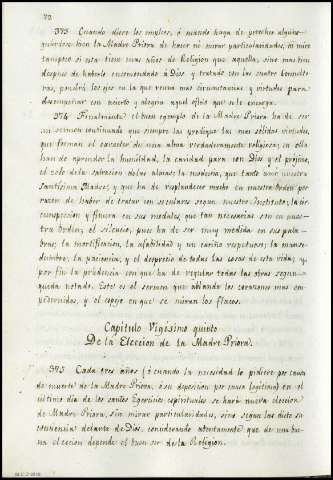 72.
373 Cuando diere los empleos, ó cuando haya de proveher alguno
guárdese bien la Madre Priora de hacer ni mirar particularidades, ni mire
tampoco si esta tiene mas años de Religion que aquella, sino mas bien
despues de haberlo encomendado á Dios y tratado con las cuatro Consulto-
ras, pondrá los ojos en la que reuna mas circunstancias y virtudes para
desempeñar con acierto y alegria aquel oficio que se le encarga.
374 Finalmente: el buen egemplo de la Madre Priora ha de ser
un sermon continuado que siempre les predique las mas sólidas virtudes,
que forman el carácter de una alma verdaderamente religiosa; en ella
han de aprender la humildad, la caridad para con Dios y el prójimo,
el zelo de la salvacion de las almas; la modestia, que tanto amó nuestra
Santisima Madre, y que ha de resplandecer mucho en nuestra Orden por
razon de haber de tratar con seculares segun nuestro Instituto; la cir-
cunspeccion y finura en sus modales, que tan necesarias son en nues-
tra Orden, el silencio, pues ha de ser muy medida en sus pala-
bras; la mortificacion, la afabilidad y un cariño respetuoso; la manse-
dumbre, la paciencia, y el desprecio de todas las cosas de esta vida; y
por fin la prudencia con que ha de regular todas las obras segun
queda notado. Este es el sermon que ablanda los corazones mas em-
pedernidos, y el espejo en que se miran los flacos.
Capitulo Vigesimo quinto
De la Eleccion de la Madre Priora.
375 Cada tres años (ó cuando la necesidad lo pidiere por causa
de muerte de la Madre Priora, ó su deposicion por causa legitima) en el
último dia de los santos Egercicios espirituales se hará nueva eleccion
de Madre Priora, sin mirar particularidades, sino segun les dicte su
conciencia delante de Dios, considerando atentamente que de una bu-
ena eleccion depende el buen ser de la Religion.